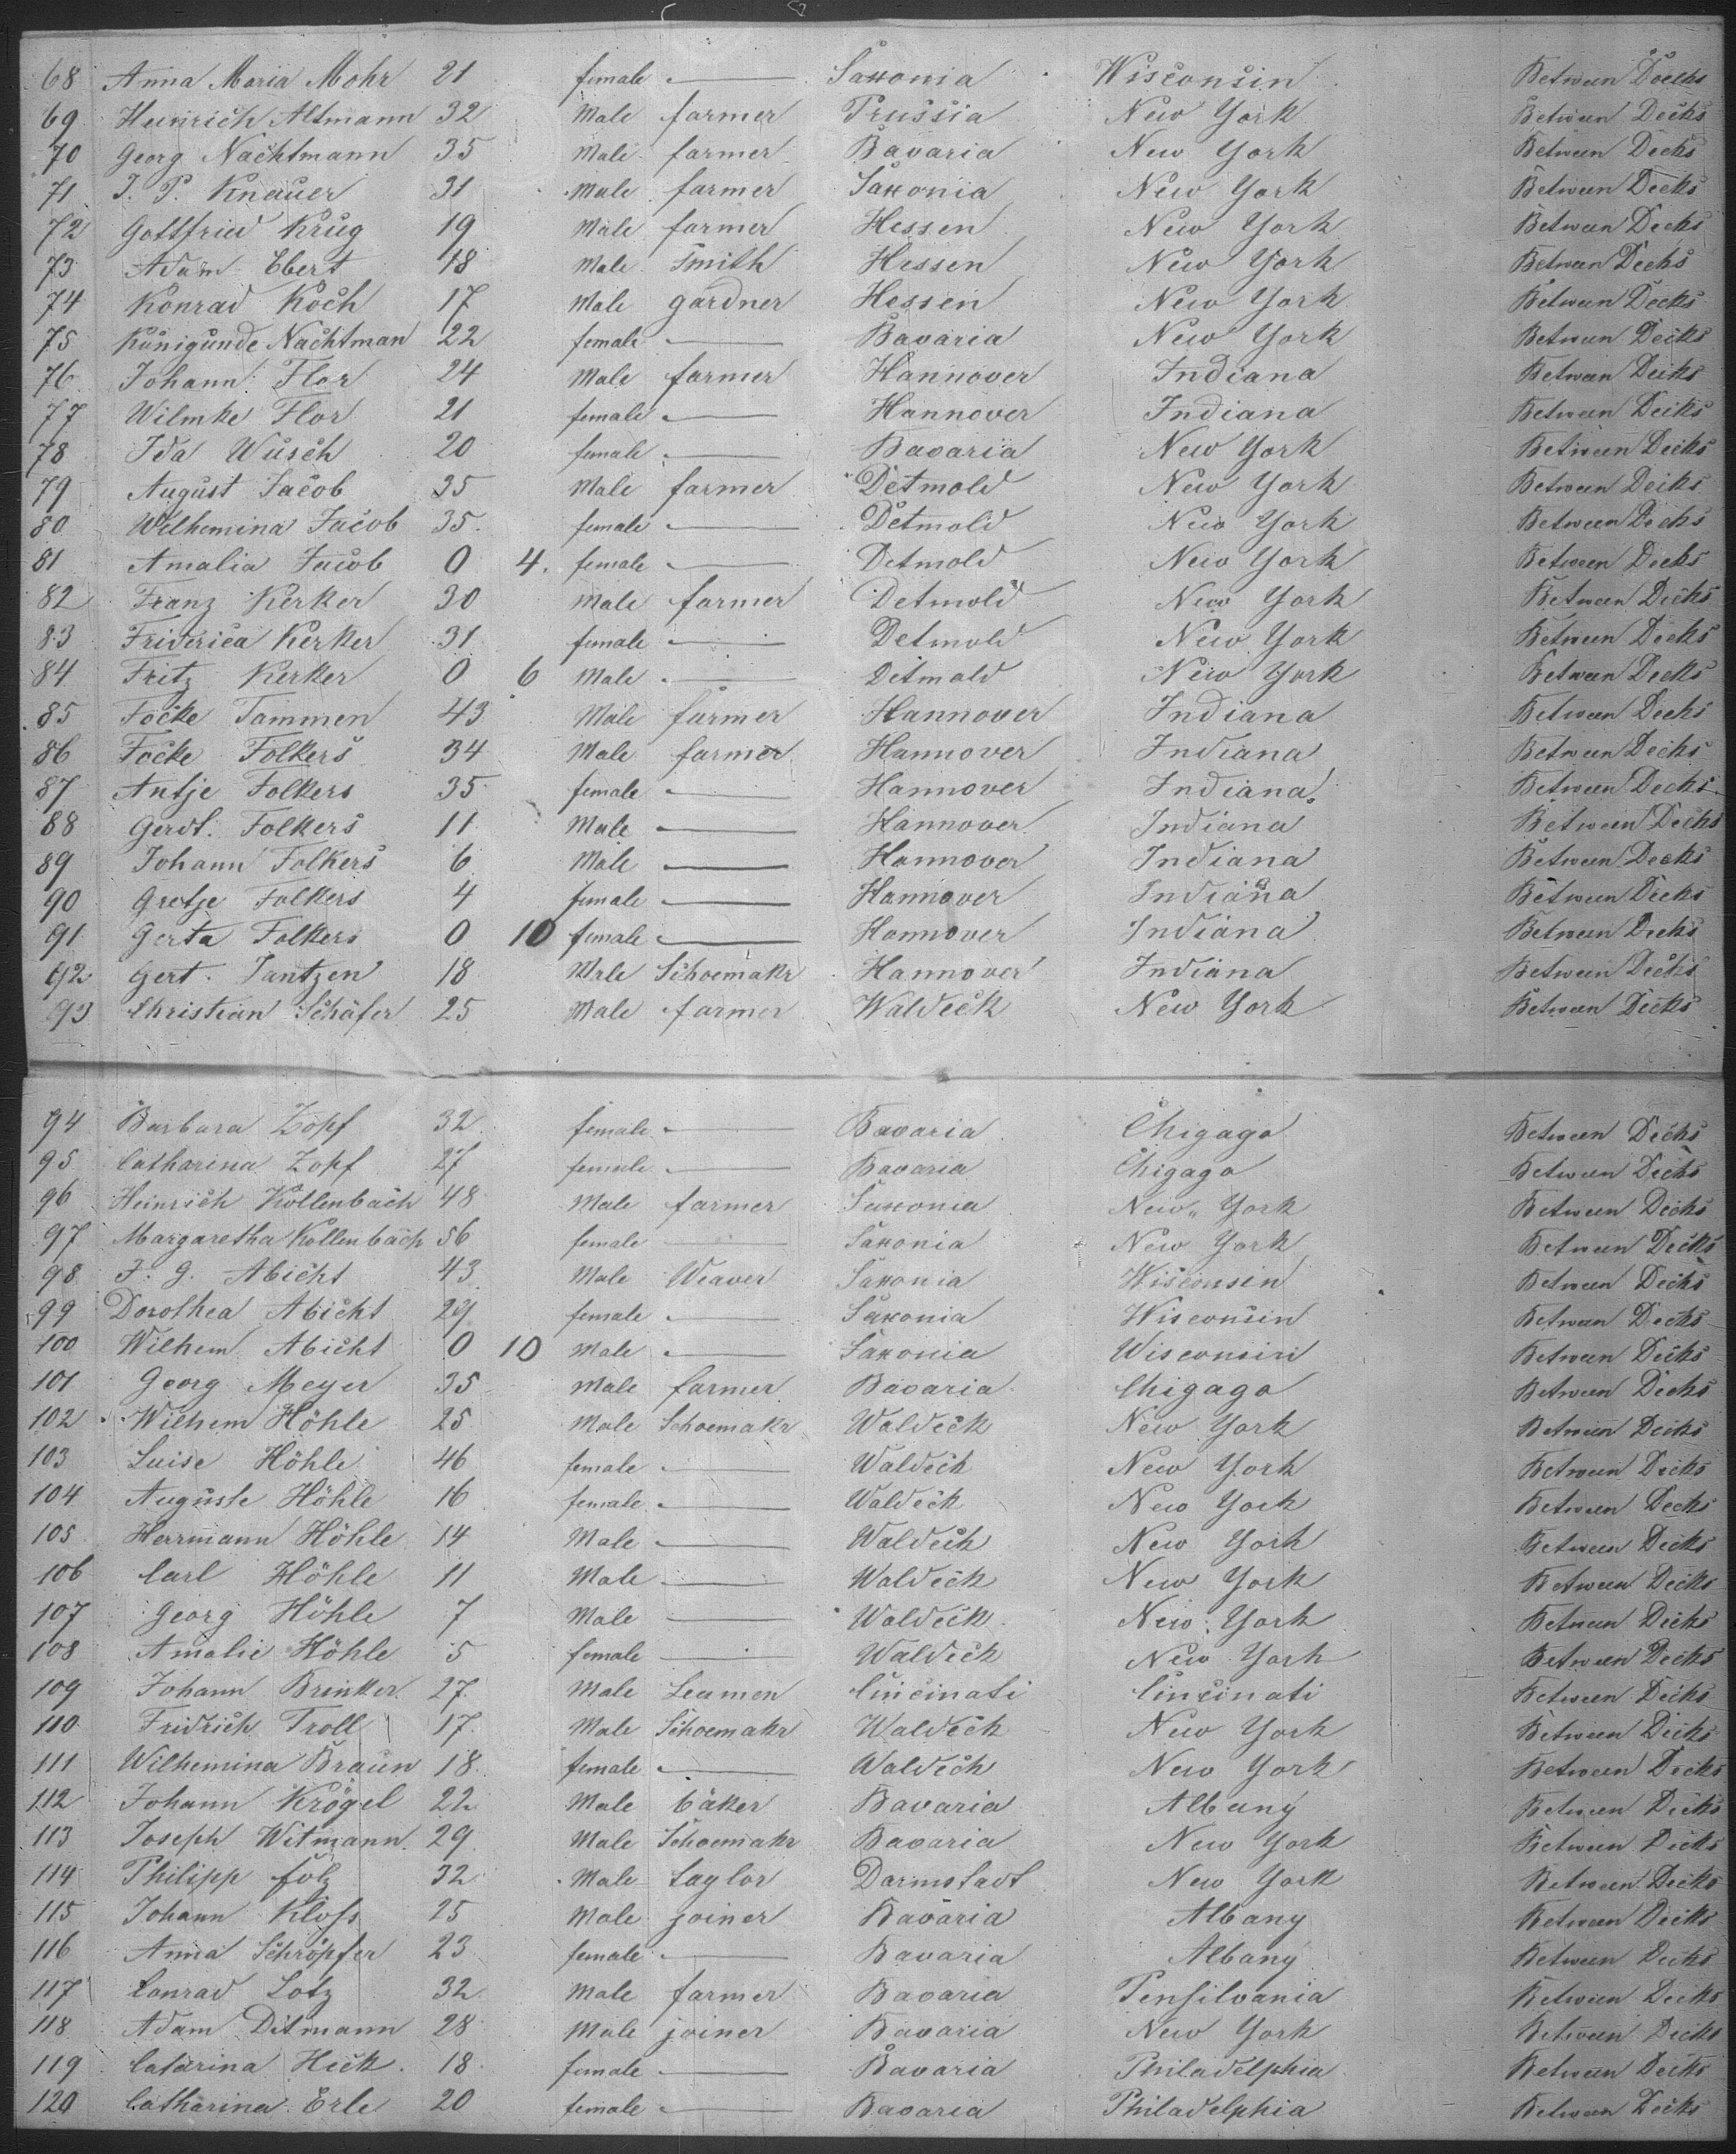 68 Anna Maria Mohr 21 female — Saxonia Wisconsin Between Decks
69 Heinrich Altmann 32 Male farmer Prussia New York Between Decks
70 Georg Nachtmann 35 Male farmer Bavaria New York Between Decks
71 J. P. Knauer 31 Male farmer Saxonia New York Between Decks
72 Gottfried Krug 19 Male farmer Hessen New York Between Decks
73 Adam Ebert 18 Male Smith Hessen New York Between Decks
74 Konrad Koch 17 Male gardner Hessen New York Between Decks
75 Kunigunde Nachtman 22 female — Bavaria New York Between Decks
76 Johann Flor 24 Male farmer Hannover Indiana Between Decks
77 Wilmke Flor 21 female — Hannover Indiana Between Decks
78 Ida Wusch 20 female — Bavaria New York Between Decks
79 August Jacob 35 Male farmer Detmold New York Between Decks
80 Wilhemina Jacob 35 female — Detmold New York Between Decks
81 Amalia Jacob 0 4. female — Detmold New York Between Decks
82 Franz Kerker 30 Male farmer Detmold New York Between Decks
83 Friderica Kerker 31 female — Detmold New York Between Decks
84 Fritz Kerker 0 6 Male — Detmold New York Between Decks
85 Focke Tammen 43 Male farmer Hannover Indiana Between Decks
86 Focke Folkers 34 Male farmer Hannover Indiana Between Decks
87 Antje Folkers 35 female — Hannover Indiana Between Decks
88 Gerdt. Folkers 11 Male — Hannover Indiana Between Decks
89 Johann Folkers 6 Male — Hannover Indiana Between Decks
90 Gretje Folkers 4 female — Hannover Indiana Between Decks
91 Gerta Folkers 0 10 female — Hannover Indiana Between Decks
92 Gert. Jantzen 18 Male Schoemakr Hannover Indiana Between Decks
93 Christian Schäfer 25 Male farmer Waldeck New York Between Decks
94 Barbara Zopf 32 female — Bavaria Chigago Between Decks
95 Catharina Zopf 27 female — Bavaria Chigago Between Decks
96 Heinrich Kollenbach 48 Male farmer Saxonia New York Between Decks
97 Margaretha Kollenbach 56 female — Saxonia New York Between Decks
98 J. G. Abicht 43 Male Weaver Saxonia Wisconsin Between Decks
99 Dorothea Abicht female — Saxonia Wisconsin Between Decks
100 Wilhem Abicht 0 10 Male — Saxonia Wisconsin Between Decks
101 Georg Meyer 35 Male farmer Bavaria Chigago Between Decks
102 Wilhem Höhle 25 Male Schoemakr Waldeck New York Between Decks
103 Luise Höhle 46 female — Waldeck New York Between Decks
104 Auguste Höhle 16 female — Waldeck New York Between Decks
105 Herrmann Höhle 14 Male — Waldeck New York Between Decks
106 Carl Höhle 11 Male — Waldeck New York Between Decks
107 Georg Höhle 7 Male — Waldeck New York Between Decks
108 Amalie Höhle 5 female — Waldeck New York Between Decks
109 Johann Brinker 27 Male Seamen Cincinati Cincinati Between Decks
110 Fridrich Troll 17 Male Schoemakr Waldeck New York Between Decks
111 Wilhemina Braun 18 female — Waldeck New York Between Decks
112 Johann Krögel 22 Male bäker Bavaria Albany Between Decks
113 Joseph Witmann 29 Male Schoemakr Bavaria New York Between Decks
114 Philipp folz 32 Male taylor Darmstadt New York Between Decks
115 Johann Kloss 25 Male joiner Bavaria Albany Between Decks
116 Anna Schröpfer 23 female — Bavaria Albany Between Decks
117 Conrad Lotz 32 Male farmer Bavaria Pensilvania Between Decks
118 Adam Ditmann 28 Male joiner Bavaria New York Between Decks
119 Catarina Hick 18 female — Bavaria Philadelphia Between Decks
120 Catharina Erle 20 female — Bavaria Philadelphia Between Decks